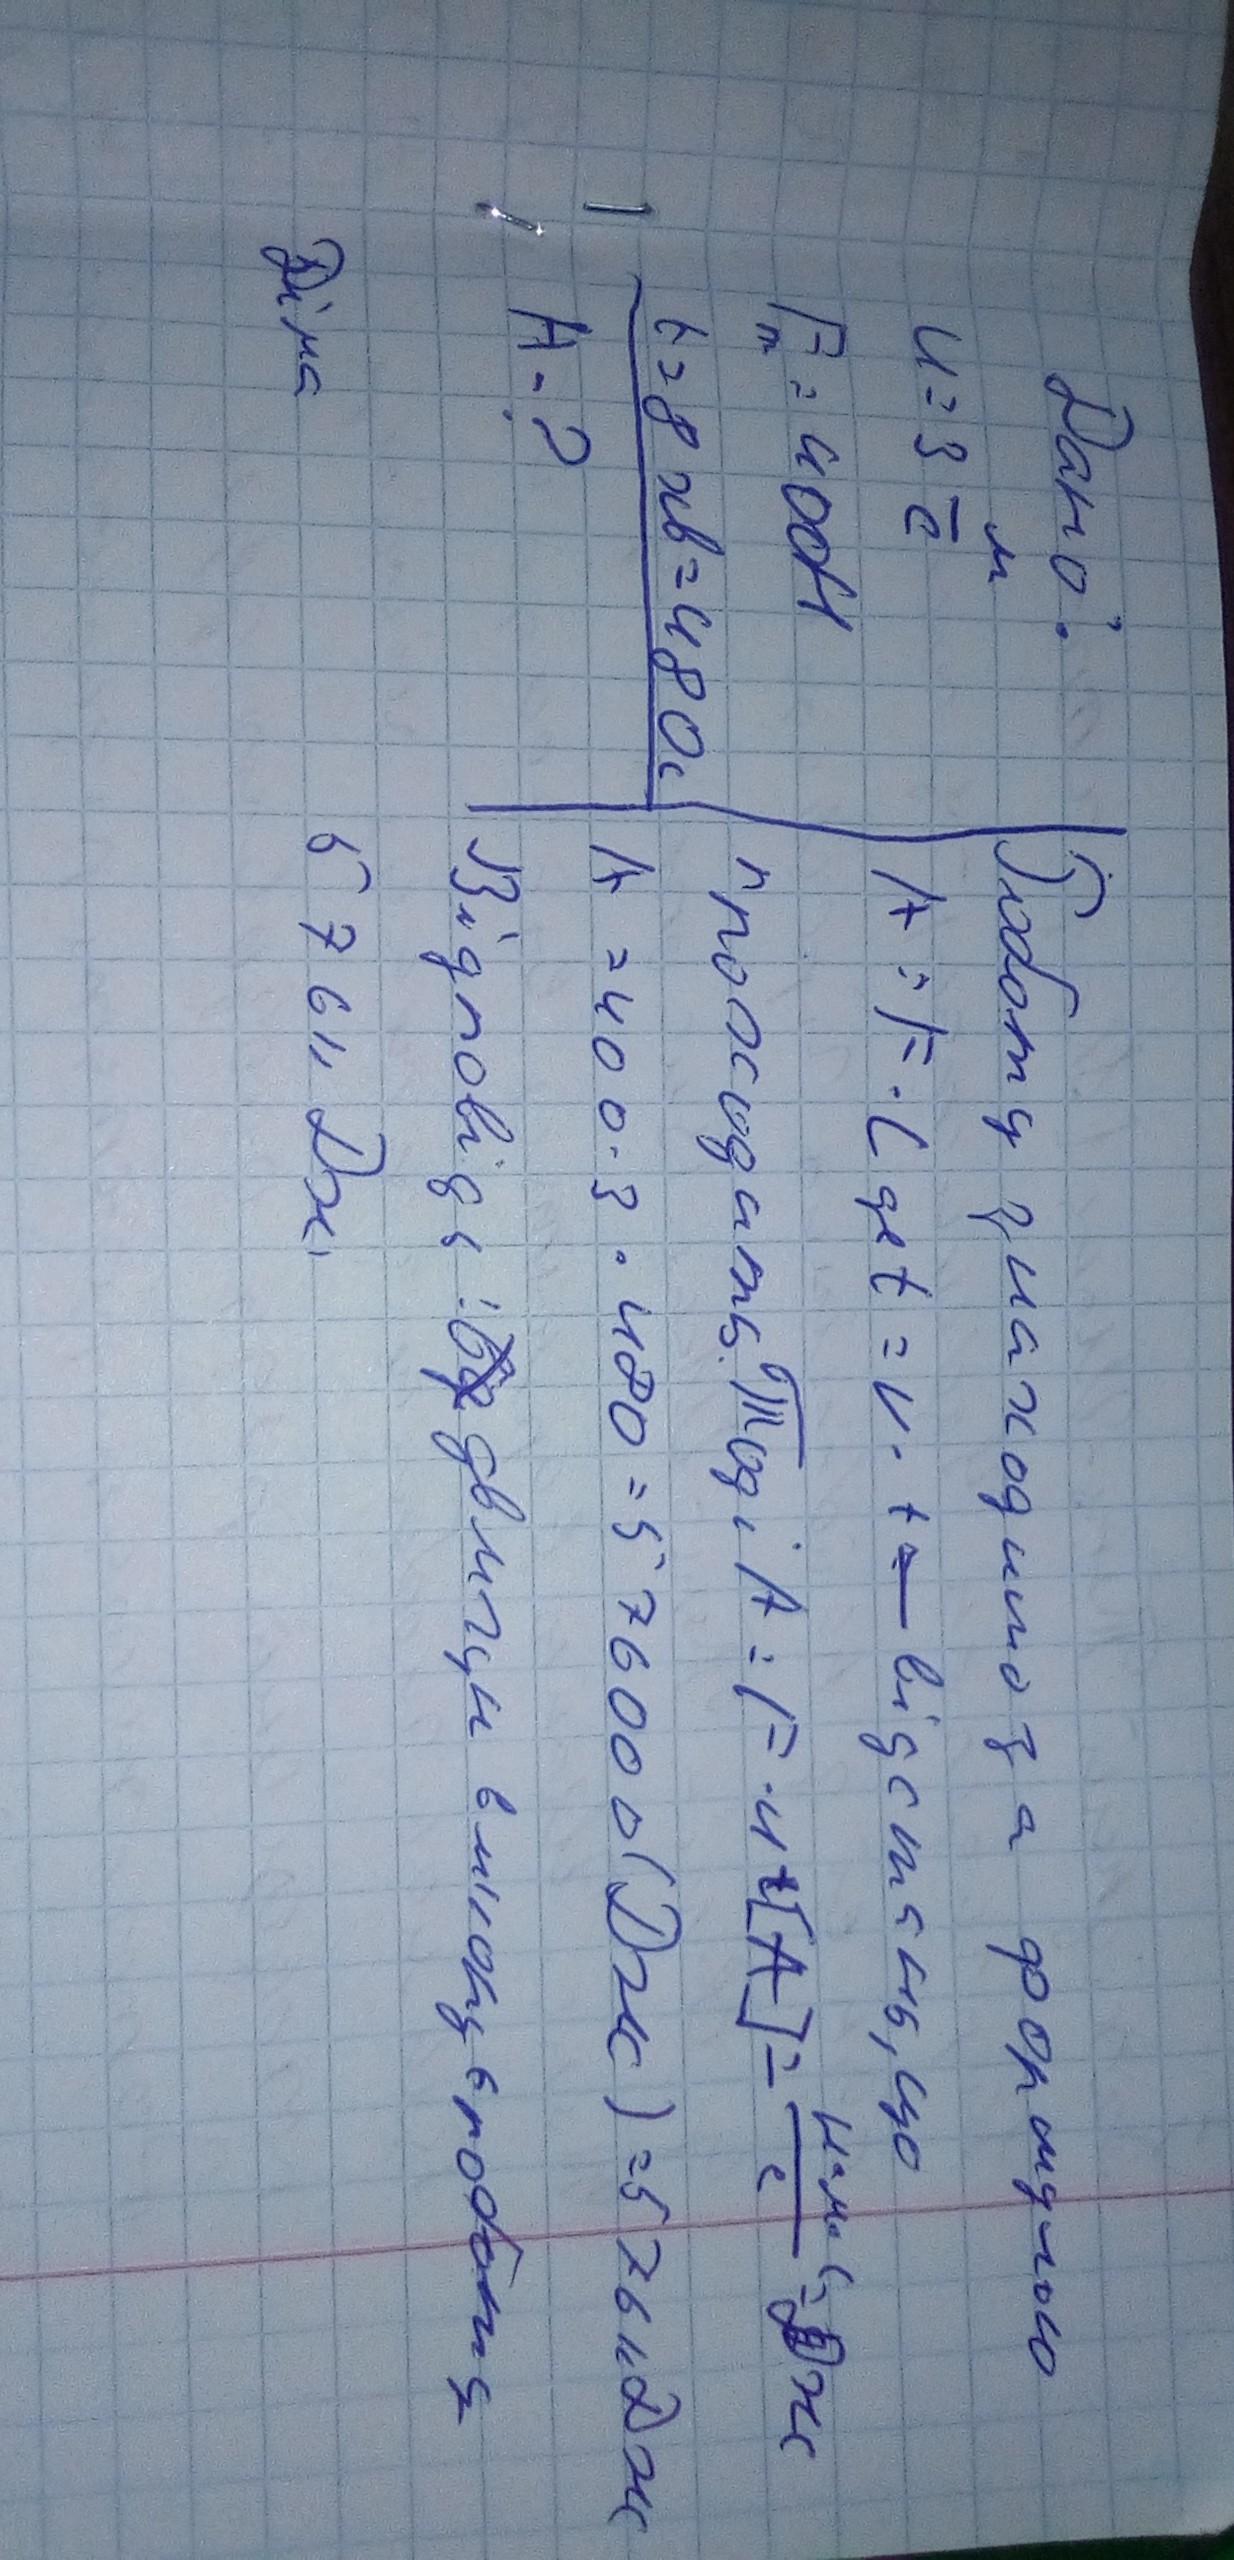 Дано:
u = 3 м/с
Fт = 400Н
t = 8 хв = 480с
A - ?
Роботу знаходимо за формулою
A = F · l де t = v · t — відстань, що
проходить. Тоді A = F · u t [A] = Н·м·с/с = Дж
A = 400 · 3 · 480 = 576000 (Дж) = 576 кДж
Відповідь: двигун виконує роботу
576 кДж.
Діма